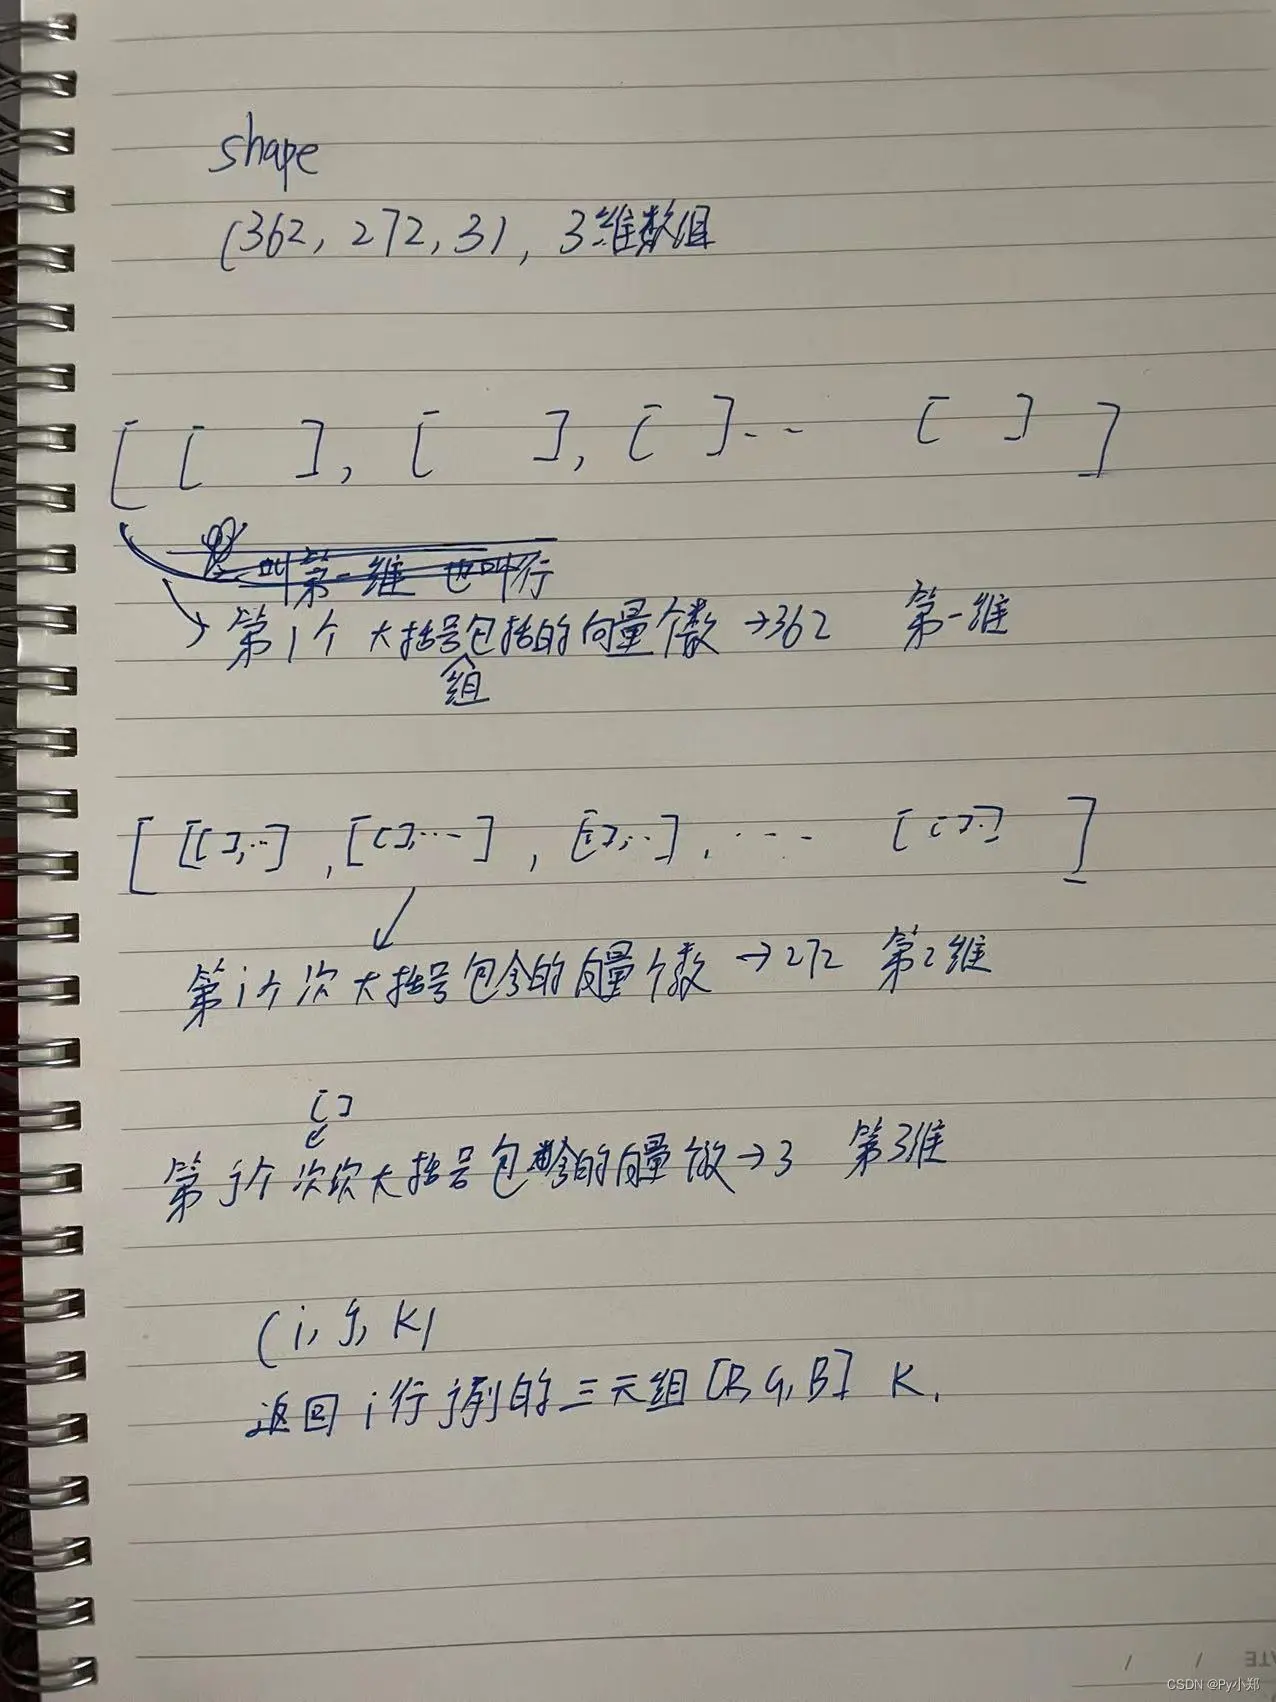 shape
(362, 272, 3), 3维数组
[ [ ], [ ], [ ]-- [ ] ]
叫第一维 也叫行
第1个 大括号包括的向量个数 →362 第一维
组
[ [[],..] , [[],...] , [[],..] , ... [[]..] ]
第i个次大括号包含的向量个数 →272 第2维
[]
第j个次次大括号包含的向量个数→3 第3维
(i, j, K)
返回i行j列的三元组[R,G,B] K.
CSDN @Py小郑